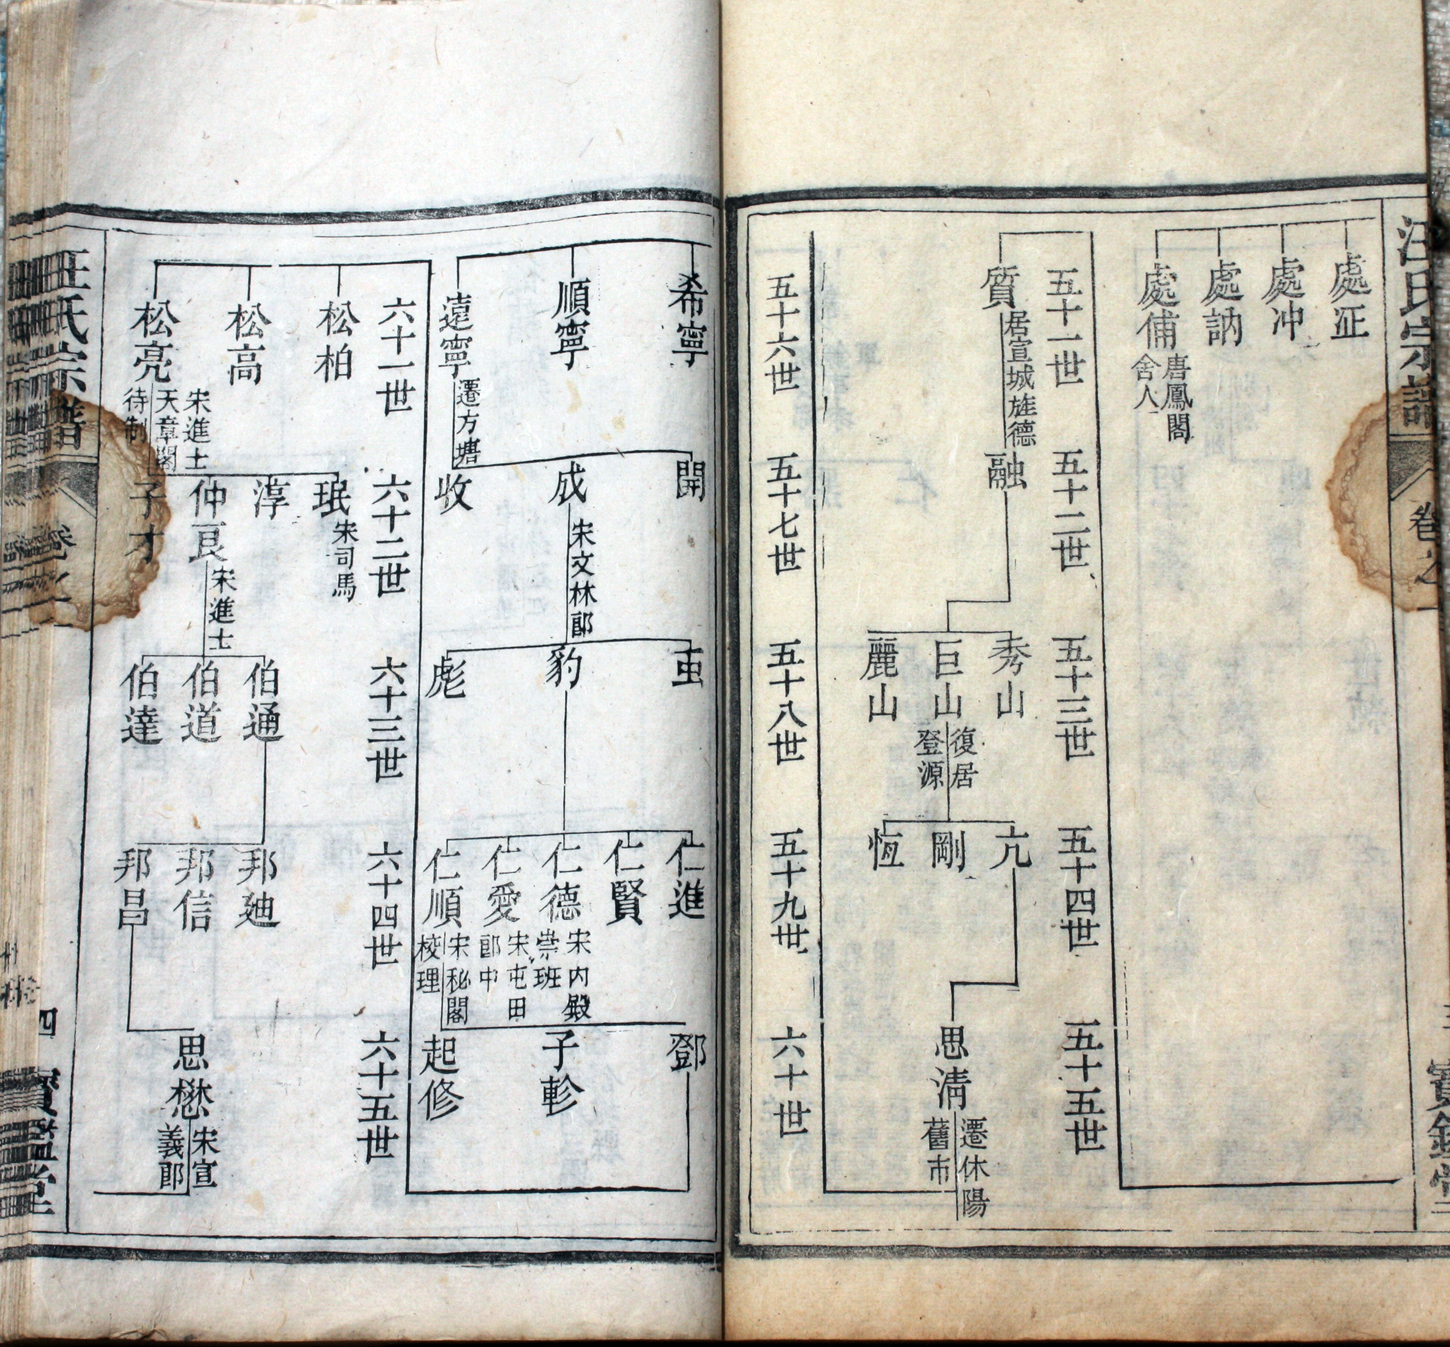 汪氏宗譜
卷之一
處冲
處訥
處俌
唐鳳閣
舍人
五十一世
五十二世
五十三世
五十四世
五十五世
質
居宣城旌德
融
秀山
巨山
復居
登源
麗山
亢
剛
恆
思清
遷休陽
舊市
五十六世
五十七世
五十八世
五十九世
六十世
希寧
順寧
遠寧
遷方塘
開
成
宋文林郎
收
豹
彪
仁進
仁賢
仁德
宋內殿
崇班
仁愛
宋屯田
郎中
仁順
宋秘閣
校理
鄧
子軫
起修
六十一世
六十二世
六十三世
六十四世
六十五世
松柏
松高
松亮
宋進士
天章閣
待制
珉
宋司馬
淳
仲良
宋進士
子才
伯通
伯道
伯達
邦迪
邦信
邦昌
思懋
宋宣
義郎
汪氏宗譜
卷之
四
寶鑑堂